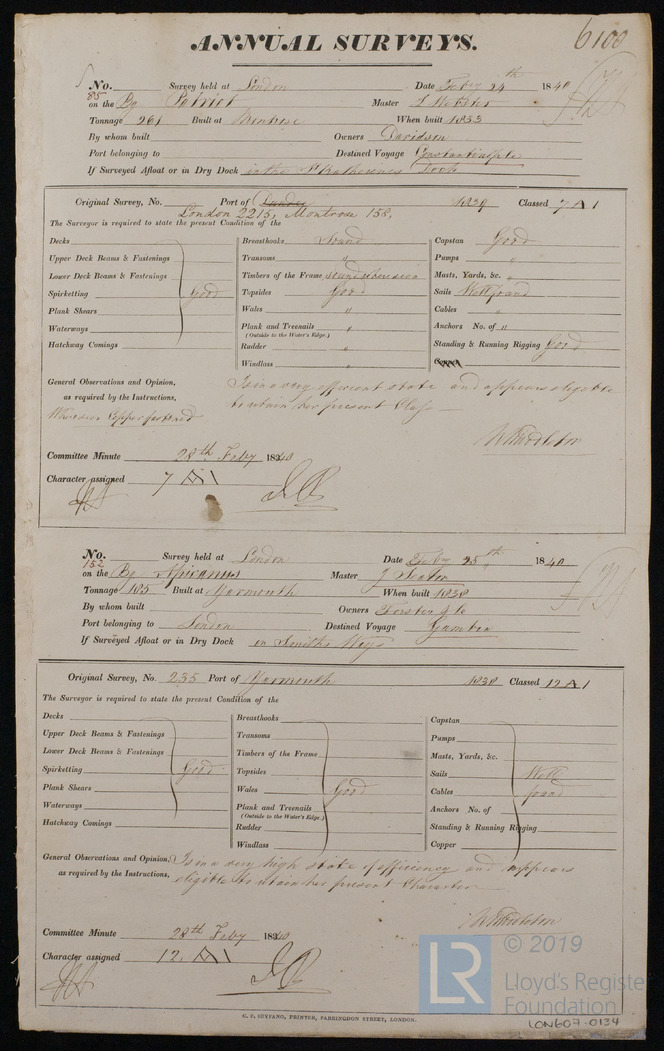 ANNUAL SURVEYS.
6100
No. 85 Survey held at London Date Feby 24th 1840
on the Bg Patriot Master Webster
Tonnage 261 Built at Montrose When built 1833
By whom built Owners Davidson
Port belonging to Destined Voyage Constantinople
If Surveyed Afloat or in Dry Dock in the St Katherines Dock
Original Survey, No. Port of Dundee 1839 Classed 7 A 1
London 2215, Montrose 158,
The Surveyor is required to state the present Condition of the
Decks
Upper Deck Beams & Fastenings
Lower Deck Beams & Fastenings
Spirketting Good
Plank Shears
Waterways
Hatchway Comings
Breasthooks Sound
Transoms "
Timbers of the Frame Sound where seen
Topsides Good
Wales "
Plank and Treenails "
(Outside to the Water's Edge.)
Rudder "
Windlass "
Capstan Good
Pumps "
Masts, Yards, &c. "
Sails Well found
Cables "
Anchors No. of "
Standing & Running Rigging Good
Copper
General Observations and Opinion, Is in a very efficient state and appears eligible
as required by the Instructions, to retain her present Class
Copper fastened
W Middleton
Committee Minute 28th Feby 1840
Character assigned 7 A 1
No. 152 Survey held at London Date Feby 25th 1840
on the Bg Africanus Master J Seaton
Tonnage 185 Built at Yarmouth When built 1838
By whom built Owners Forster & Co
Port belonging to London Destined Voyage Gambia
If Surveyed Afloat or in Dry Dock on Smiths Ways
Original Survey, No. 235 Port of Yarmouth 1838 Classed 12 A 1
The Surveyor is required to state the present Condition of the
Decks
Upper Deck Beams & Fastenings
Lower Deck Beams & Fastenings
Spirketting Good
Plank Shears
Waterways
Hatchway Comings
Breasthooks
Transoms
Timbers of the Frame
Topsides
Wales Good
Plank and Treenails
(Outside to the Water's Edge.)
Rudder
Windlass
Capstan
Pumps
Masts, Yards, &c.
Sails Well
Cables found
Anchors No. of
Standing & Running Rigging
Copper
General Observations and Opinion, Is in a very high state of efficiency and appears
as required by the Instructions, eligible to retain her present Character
W Middleton
Committee Minute 28th Feby 1840
Character assigned 12 A 1
C. F. SEYFANG, PRINTER, FARRINGDON STREET, LONDON.
LR © 2019
Lloyd's Register
Foundation
LON607-0134